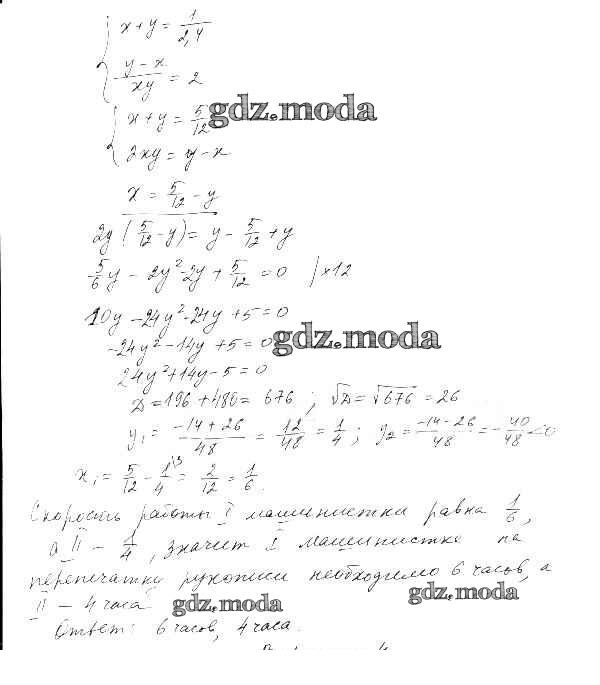 x + y = 1/2,4
y - x / xy = 2
x + y = 5/12 gdz.moda
2xy = y - x
x = 5/12 - y
2y (5/12 - y) = y - 5/12 + y
5/6 y - 2y² - 2y + 5/12 = 0 | ×12
10y - 24y² - 24y + 5 = 0
-24y² - 14y + 5 = 0 gdz.moda
24y² + 14y - 5 = 0
D = 196 + 480 = 676 ; √D = √676 = 26
y₁ = -14 + 26 / 48 = 12/48 = 1/4 ; y₂ = -14 - 26 / 48 = - 40/48 < 0
x₁ = 5/12 - 1/4 \3 = 2/12 = 1/6.
Скорость работы I машинистки равна 1/6,
а II - 1/4, значит I машинистке на
перепечатку рукописи необходимо 6 часов, а
II - 4 часа gdz.moda gdz.moda
Ответ: 6 часов, 4 часа.